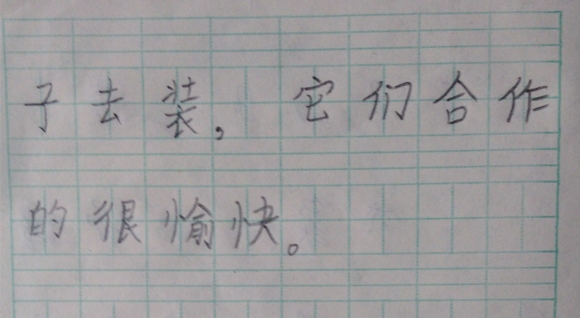 子去装，它们合作
的很愉快。